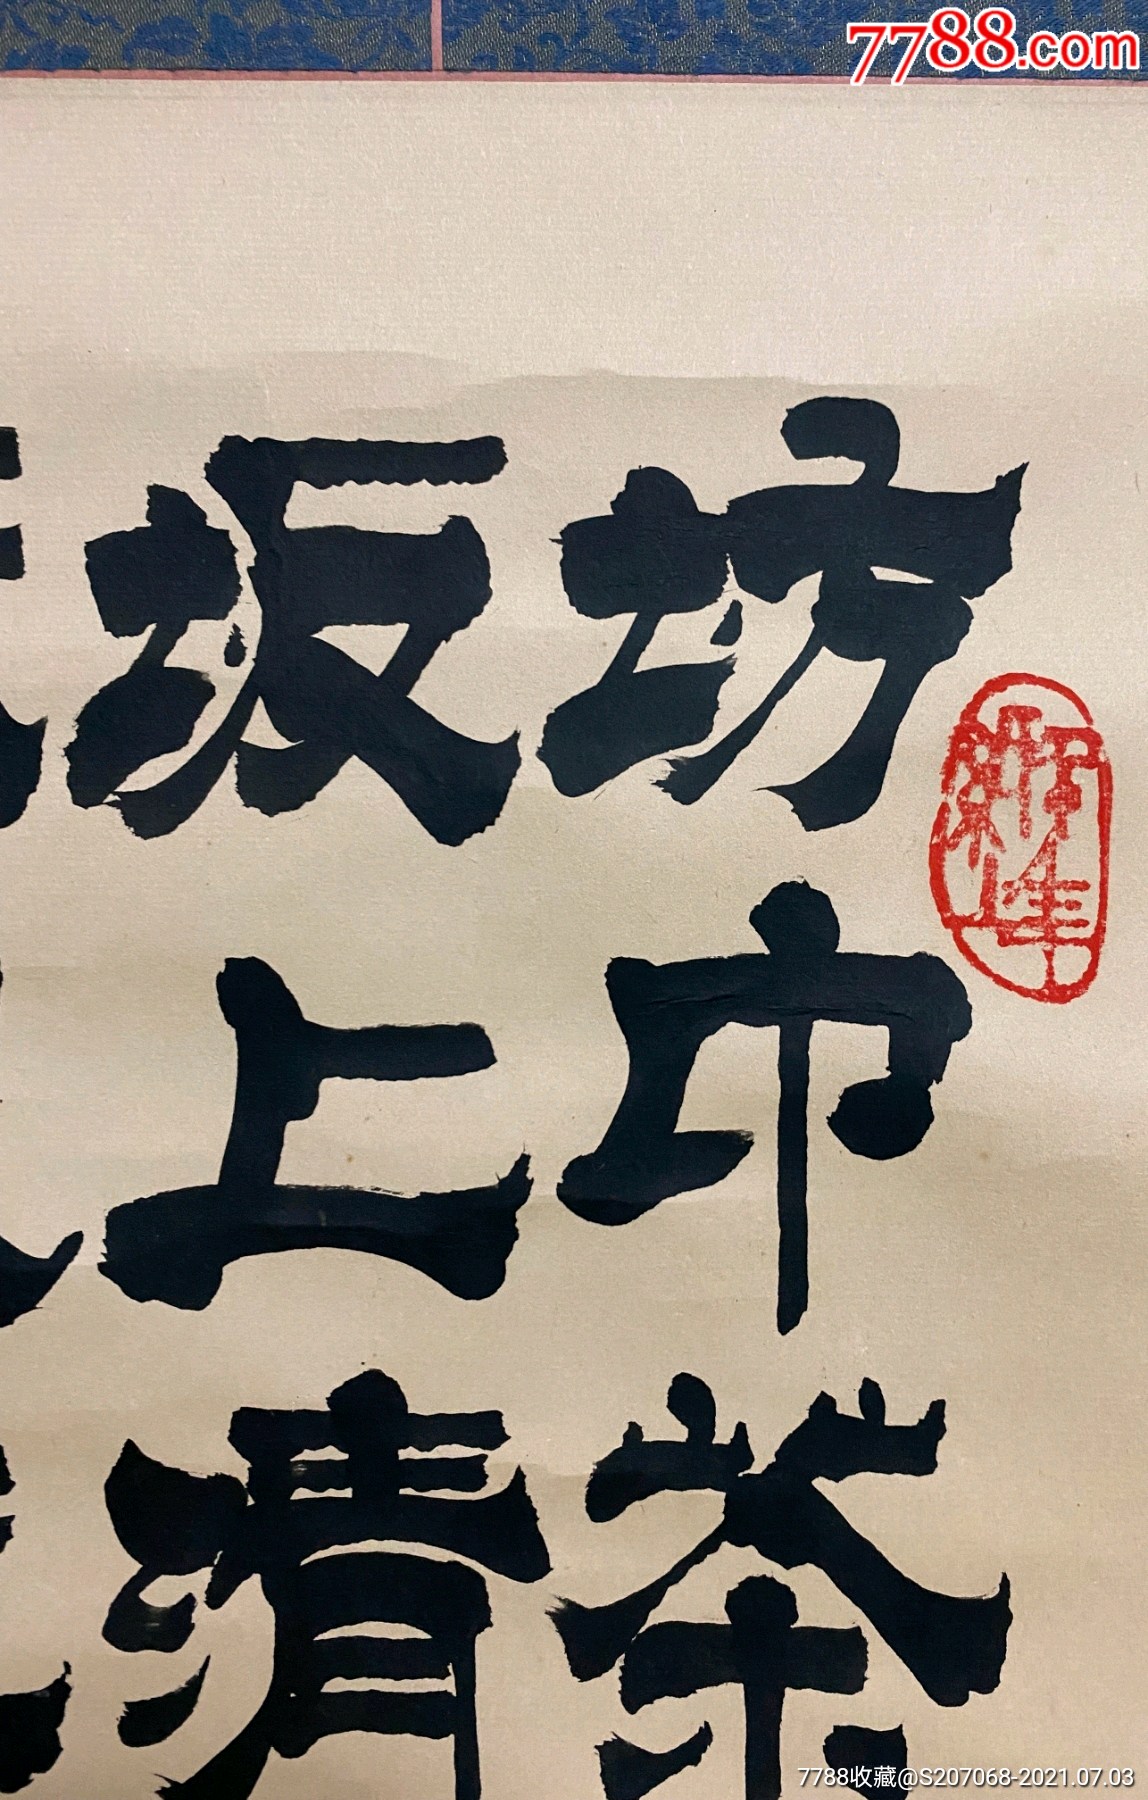 7788.com
坊巾茶
坂上清
7788收藏@S207068-2021.07.03